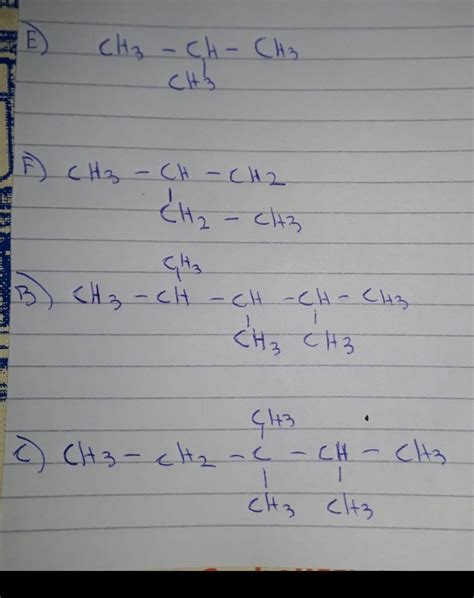 E) CH3 - CH - CH3
CH3
F) CH3 - CH - CH2
CH2 - CH3
CH3
B) CH3 - CH - CH - CH - CH3
CH3 CH3
CH3
C) CH3 - CH2 - C - CH - CH3
CH3 CH3